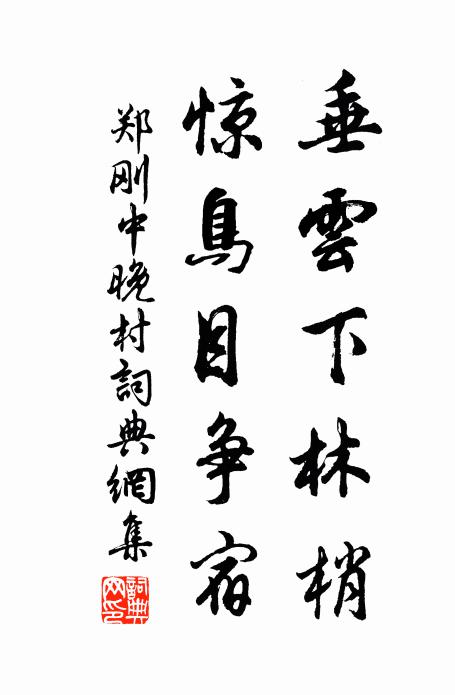 垂雲下林梢
惊鳥目争宿
郑刚中晚村詞典網集
詞典網印